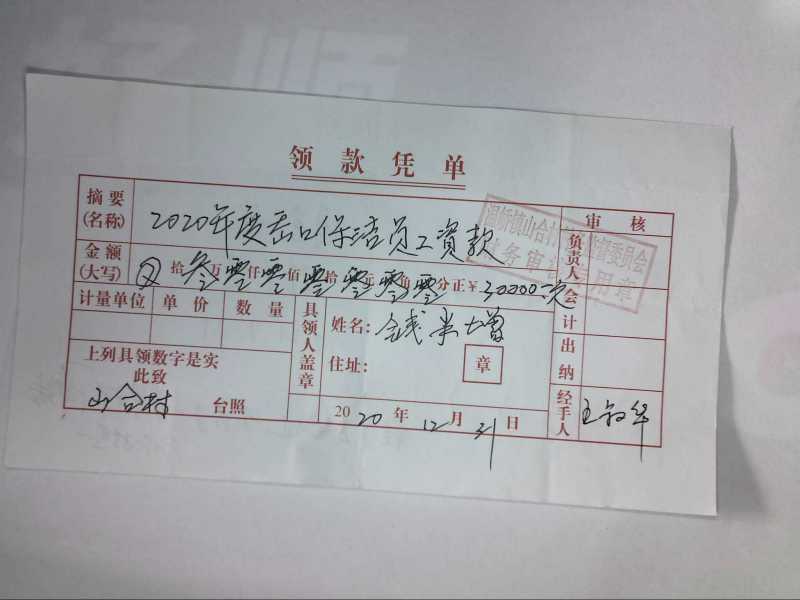 领款凭单
摘要(名称) 2020年度岙口保洁员工資款 审核
金额(大写) 拾 叁万 零仟 零佰 零拾 零元 零角 零分正¥ 30000元
计量单位 单价 数量
具领人盖章
姓名:
住址: 章
上列具领数字是实
此致
山合村 台照
2020年12月31日
负责人
会计
出纳
经手人 王